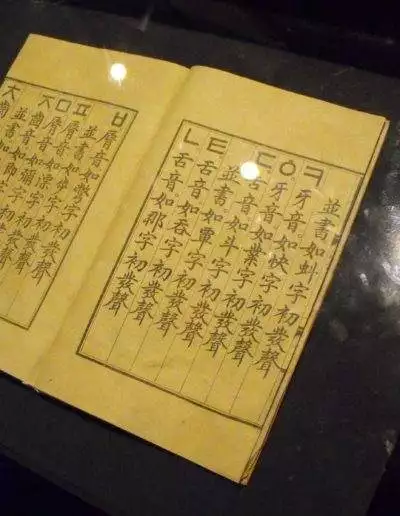 並書如虯字初發聲
ㅋ牙音如快字初發聲
ㆁ牙音如業字初發聲
ㄷ舌音如斗字初發聲
並書如覃字初發聲
ㅌ舌音如呑字初發聲
ㄴ舌音如那字初發聲
ㅂ脣音如彆字初發聲
並書如步字初發聲
ㅍ脣音如漂字初發聲
ㅁ脣音如彌字初發聲
ㅈ齒音如即字初發聲
並書如
ㅊ齒音